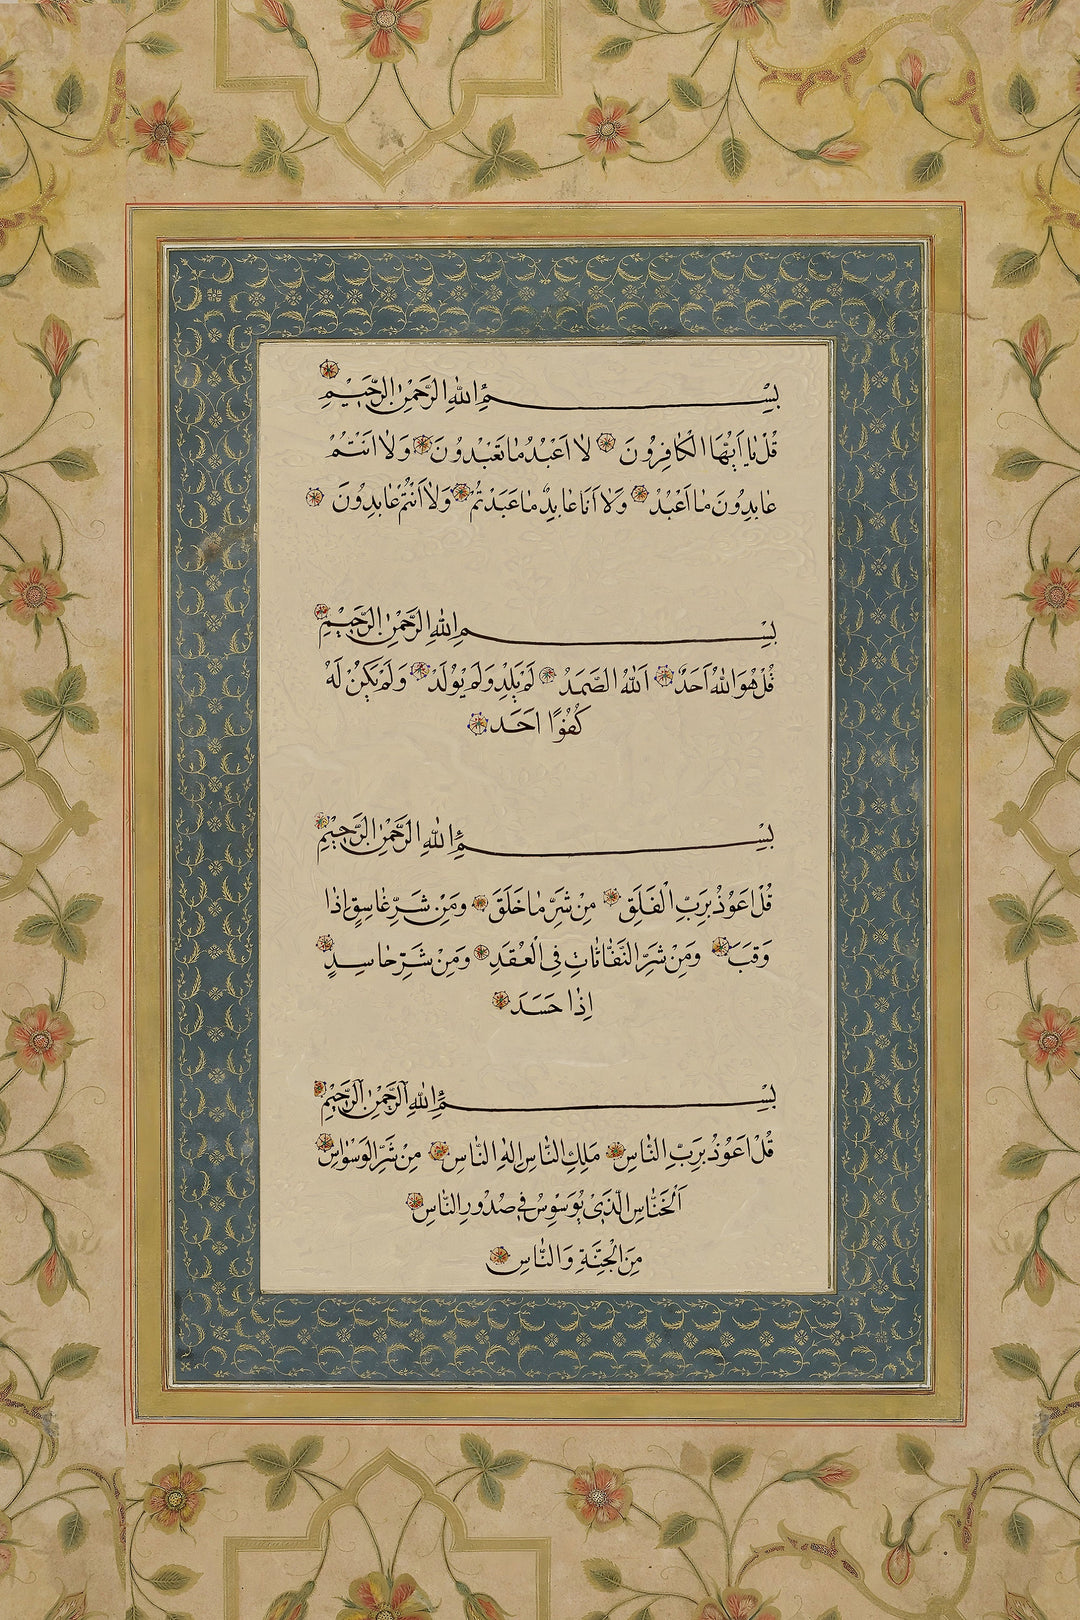 بِسْمِ اللهِ الرَّحْمٰنِ الرَّحِيمِ
قُلْ يَا اَيُّهَا الْكَافِرُونَ لَا اَعْبُدُ مَا تَعْبُدُونَ وَلَا اَنْتُمْ
عَابِدُونَ مَا اَعْبُدُ وَلَا اَنَا عَابِدٌ مَا عَبَدْتُمْ وَلَا اَنْتُمْ عَابِدُونَ
بِسْمِ اللهِ الرَّحْمٰنِ الرَّحِيمِ
قُلْ هُوَ اللهُ اَحَدٌ اَللهُ الصَّمَدُ لَمْ يَلِدْ وَلَمْ يُولَدْ وَلَمْ يَكُنْ لَهُ
كُفُوًا اَحَد
بِسْمِ اللهِ الرَّحْمٰنِ الرَّحِيمِ
قُلْ اَعُوذُ بِرَبِّ الْفَلَقِ مِنْ شَرِّ مَا خَلَقَ وَمِنْ شَرِّ غَاسِقٍ اِذَا
وَقَبَ وَمِنْ شَرِّ النَّفَّاثَاتِ فِي الْعُقَدِ وَمِنْ شَرِّ حَاسِدٍ
اِذَا حَسَدَ
بِسْمِ اللهِ الرَّحْمٰنِ الرَّحِيمِ
قُلْ اَعُوذُ بِرَبِّ النَّاسِ مَلِكِ النَّاسِ اِلٰهِ النَّاسِ مِنْ شَرِّ الْوَسْوَاسِ
اَلْخَنَّاسِ الَّذِي يُوَسْوِسُ فِي صُدُورِ النَّاسِ
مِنَ الْجِنَّةِ وَالنَّاسِ